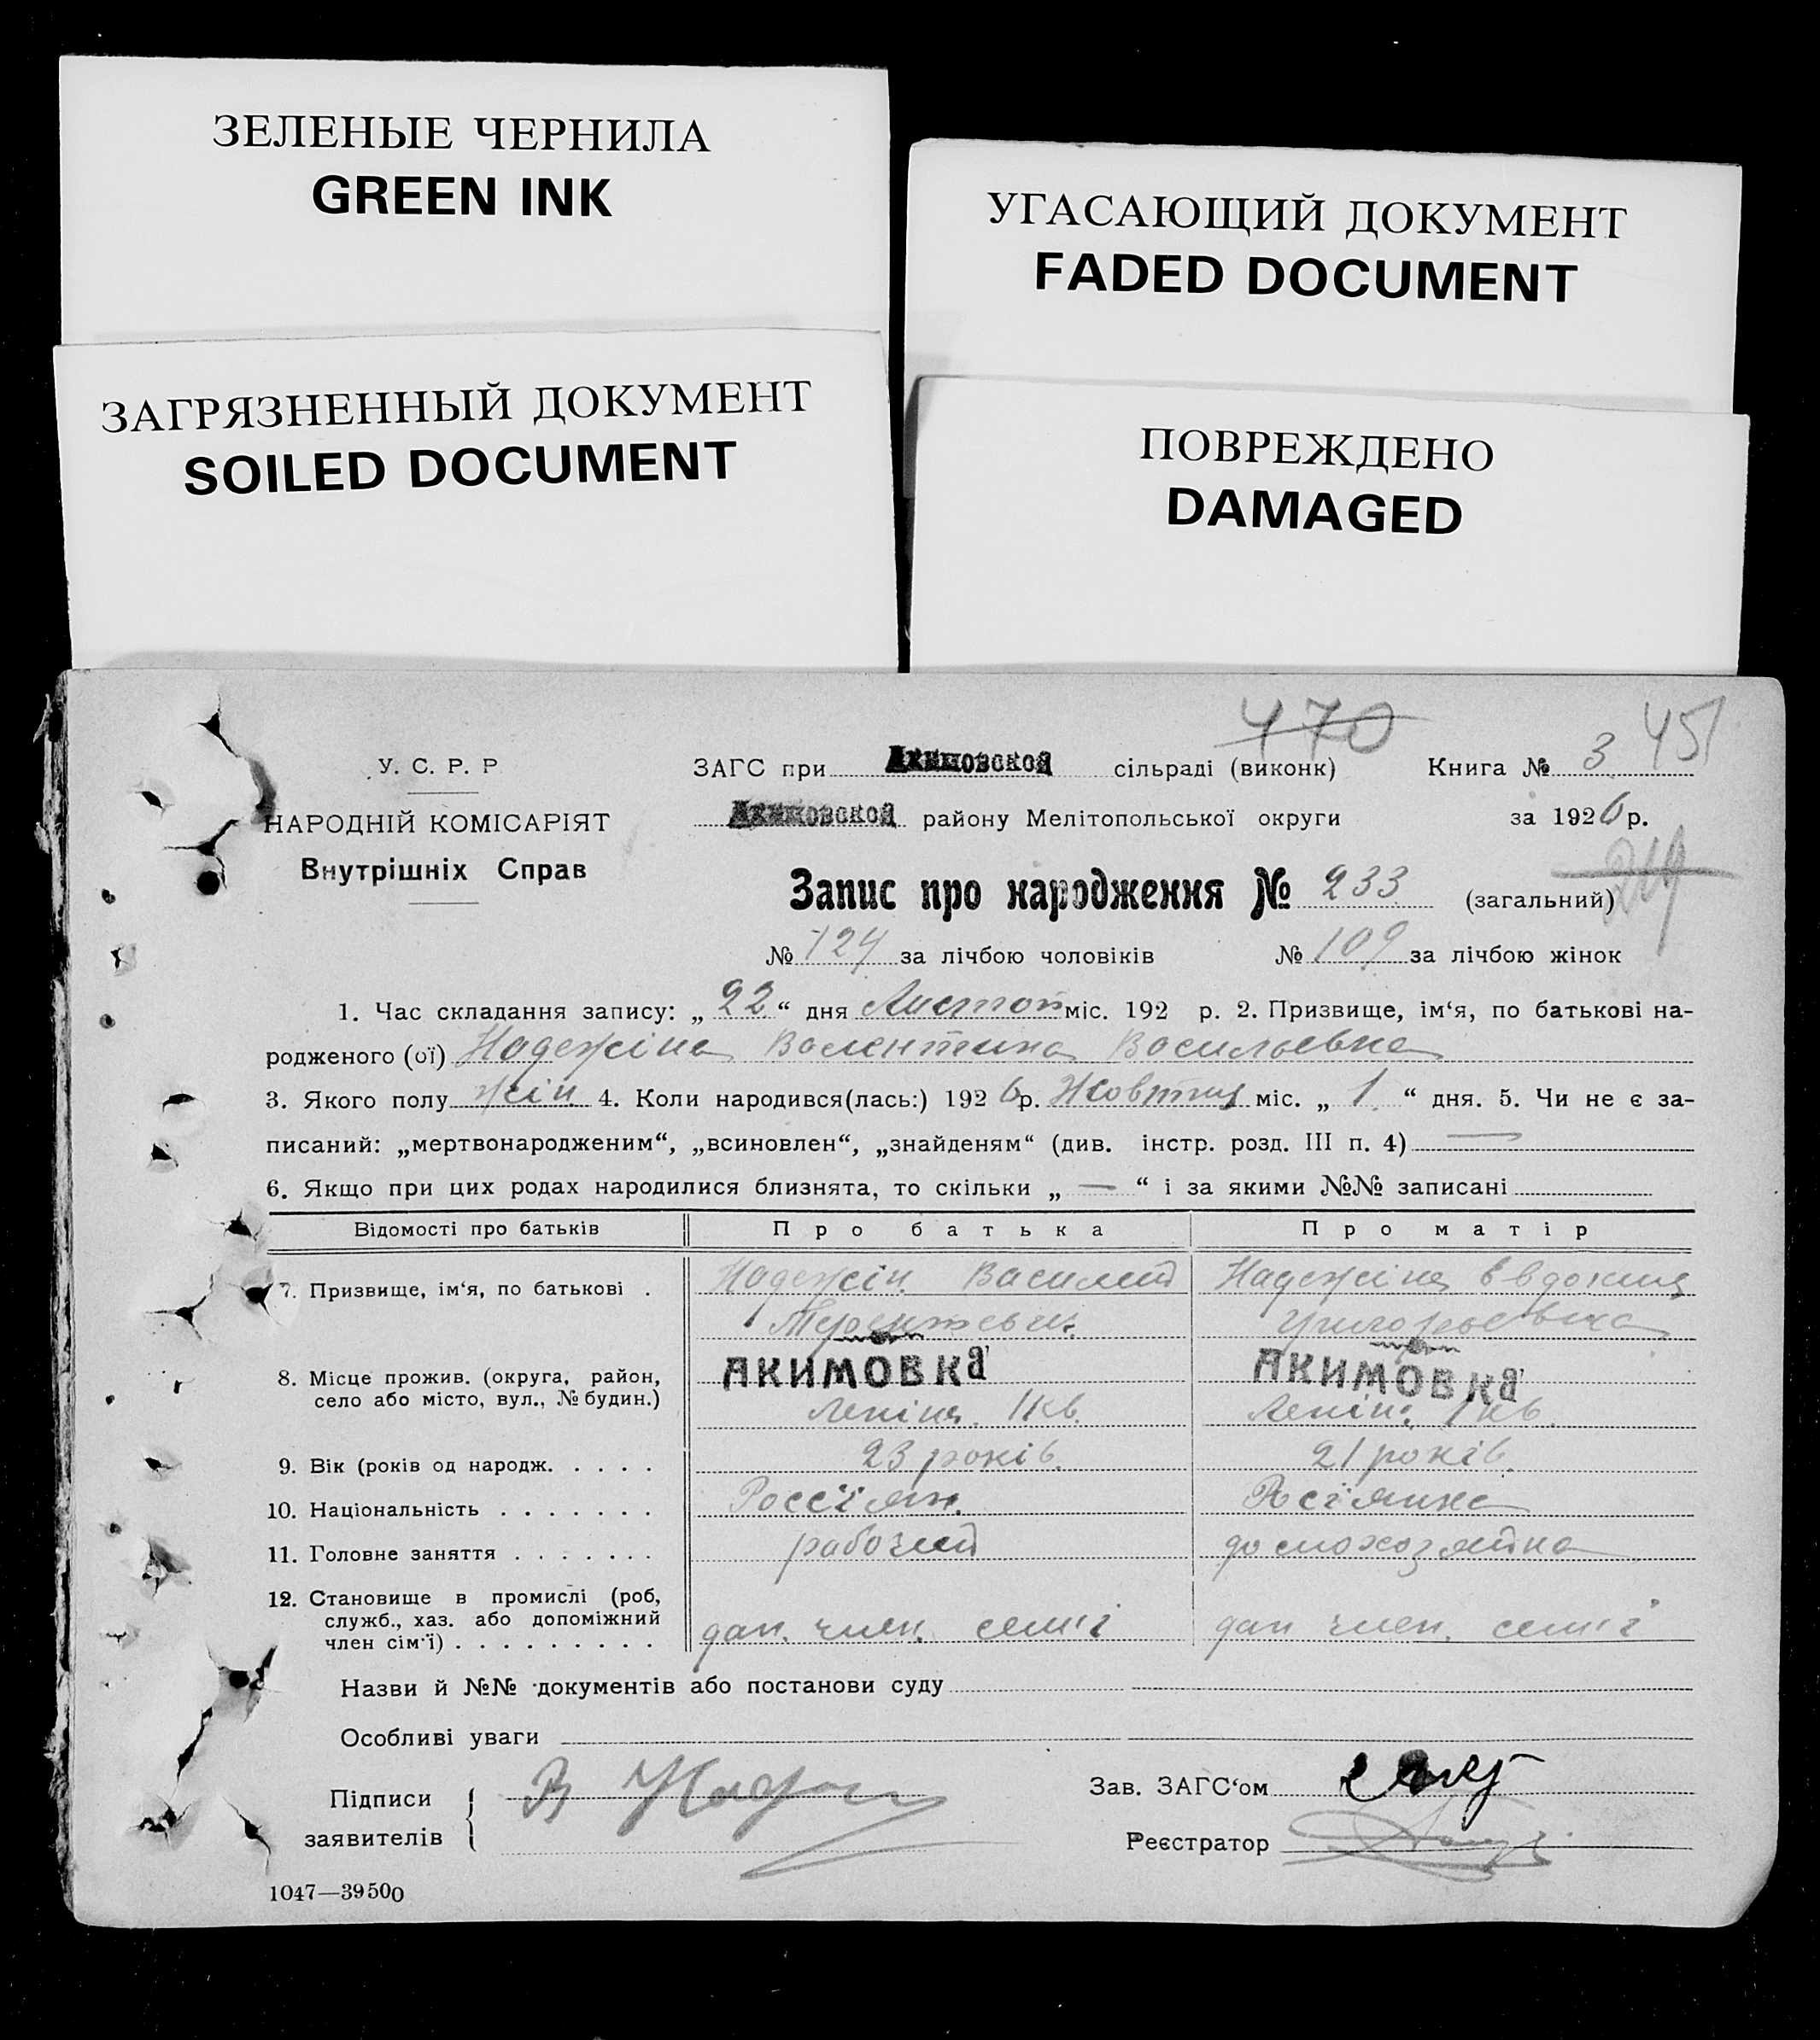 ЗЕЛЕНЫЕ ЧЕРНИЛА
GREEN INK
УГАСАЮЩИЙ ДОКУМЕНТ
FADED DOCUMENT
ЗАГРЯЗНЕННЫЙ ДОКУМЕНТ
SOILED DOCUMENT
ПОВРЕЖДЕНО
DAMAGED
470
451
У. С. Р. Р
НАРОДНІЙ КОМІСАРІЯТ
Внутрішніх Справ
ЗАГС при Акимовской сільраді (виконк) Книга № 3
Акимовской району Мелітопольської округи за 1926 р.
Запис про народження № 233 (загальний)
№ 124 за лічбою чоловіків № 109 за лічбою жінок
1. Час складання запису: „ 22 “ дня Листоп міс. 192 р. 2. Призвище, ім‘я, по батькові на-
родженого (ої) Надежіна Валентина Васильевна
3. Якого полу жін 4. Коли народився(лась:) 1926 р. Жовтня міс. „ 1 “ дня. 5. Чи не є за-
писаний: „мертвонародженим“, „всиновлен“, „знайденям“ (див. інстр. розд. III п. 4) —
6. Якщо при цих родах народилися близнята, то скільки „ — “ і за якими №№ записані
Відомості про батьків Про батька Про матір
7. Призвище, ім‘я, по батькові . Надежін. Василий Терентьевич. Надежіна Евдокия Григорьевна
8. Місце прожив. (округа, район, село або місто, вул., № будин.) АКИМОВКА Леніна. 1 кв. АКИМОВКА Леніна. 1 кв.
9. Вік (років од народж. . . . . 23 років. 21 років.
10. Національність . . . . . . . Россіян. Росіянка
11. Головне заняття . . . . . . . рабочий домохозяйка
12. Становище в промислі (роб, служб., хаз. або допоміжний член сім‘ї) . . . . . . . . . дап. член. семиі дап член. семиі
Назви й №№ документів або постанови суду
Особливі уваги
Підписи
заявителів
Зав. ЗАГС‘ом
Реєстратор
1047—39500